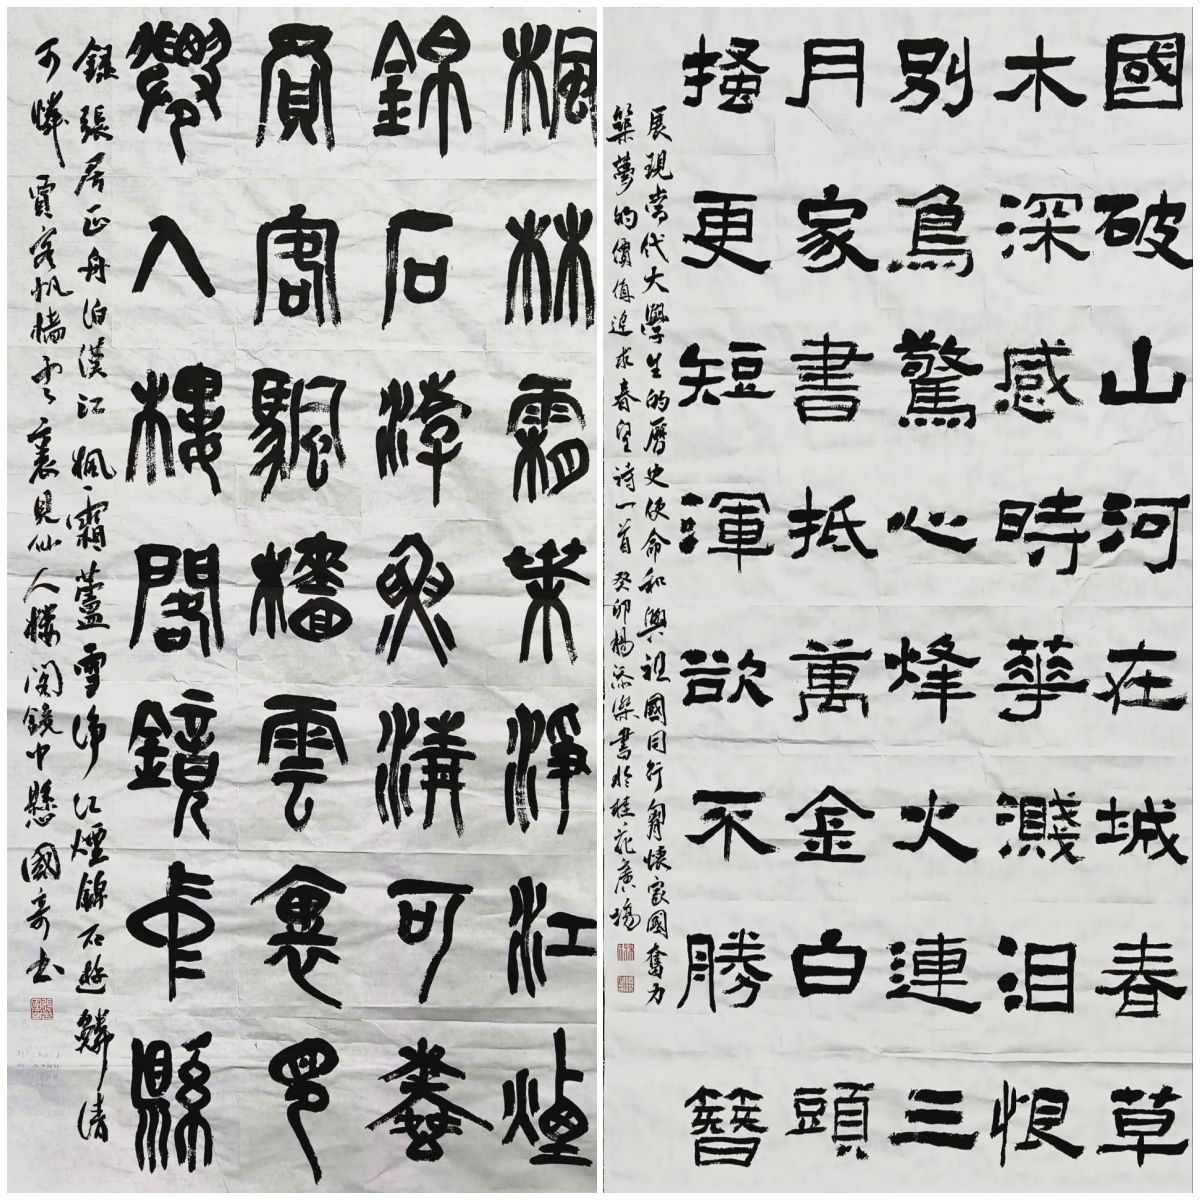 國破山河在城春草
木深感時華濺泪恨
别鳥驚心烽火連三
月家書抵萬金白頭
搔更短渾欲不勝簪
展現當代大學生的歷史使命和與祖國同行胸懷家國奮力
築夢的價值追求春望诗一首 癸卯楊添樂書於桂花廣場
楓林霜葉淨江煙
錦石游魚清可憐
賈客帆檣雲裏見
僊人樓閣鏡中縣
録張居正舟泊漢江 楓霜蘆雪净江煙錦石遊鱗清
可憐賈客帆檣雲裏見仙人樓閣鏡中懸 國奇书